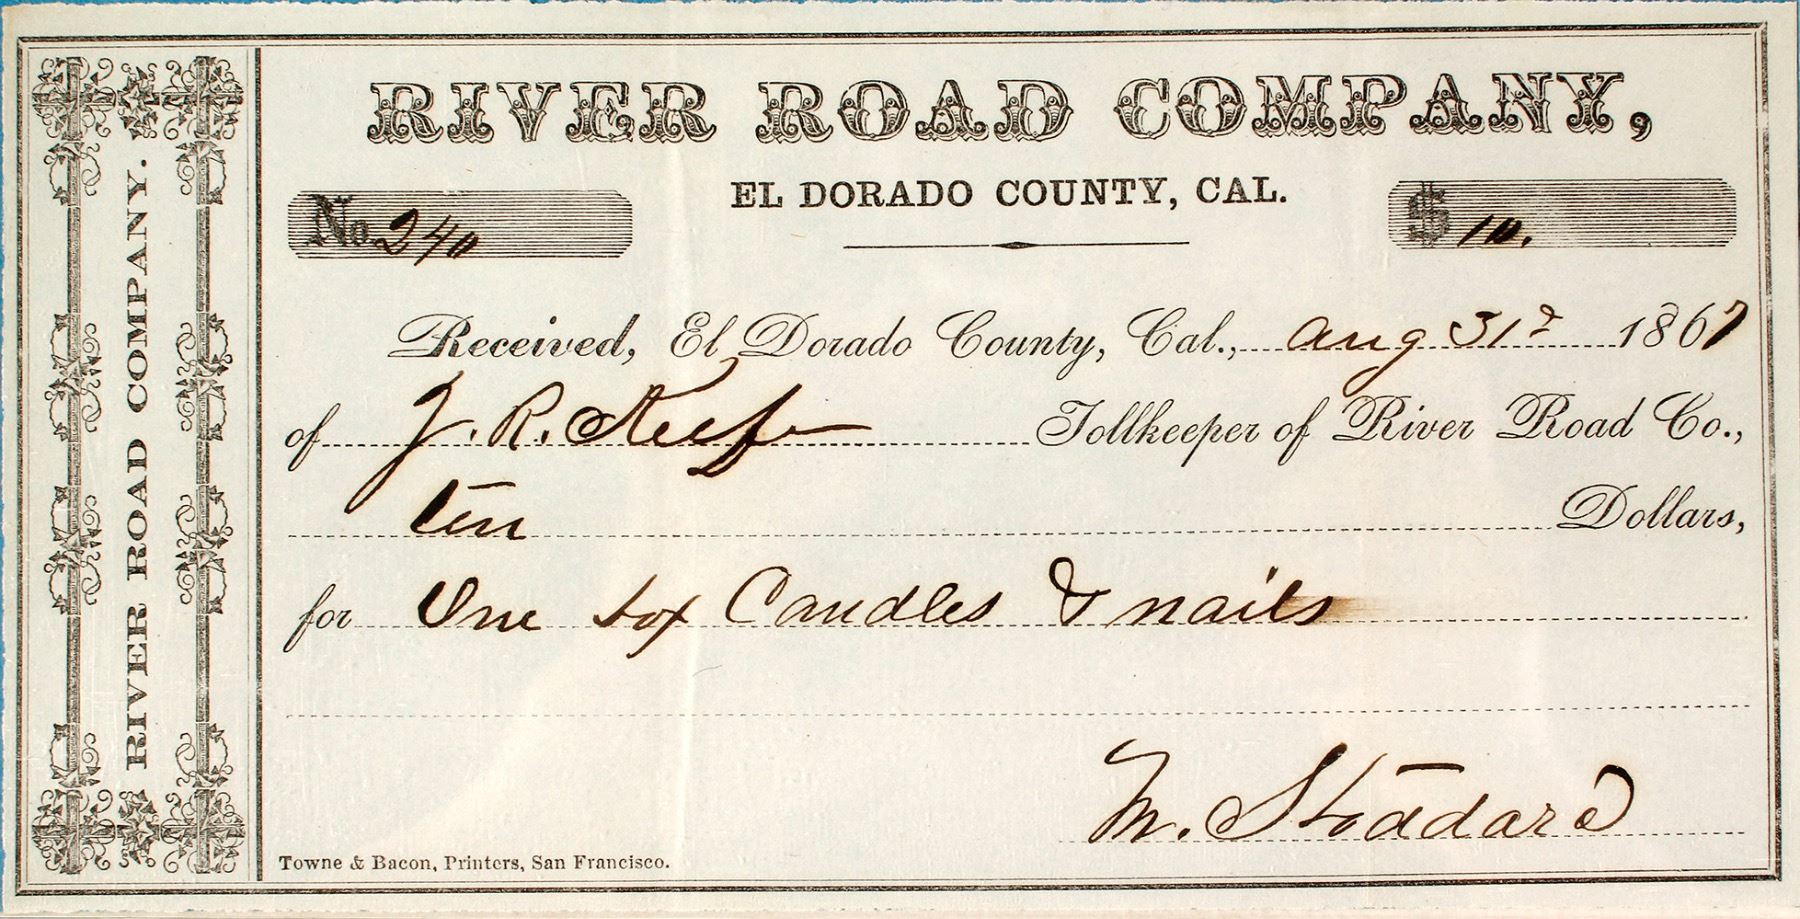 RIVER ROAD COMPANY,
EL DORADO COUNTY, CAL.
No. 240
$ 10.
Received, El Dorado County, Cal., Aug 31st 1867
of J. R. Keefe Tollkeeper of River Road Co.,
ten Dollars,
for One box Candles & nails
M. Stoddard
Towne & Bacon, Printers, San Francisco.
RIVER ROAD COMPANY.